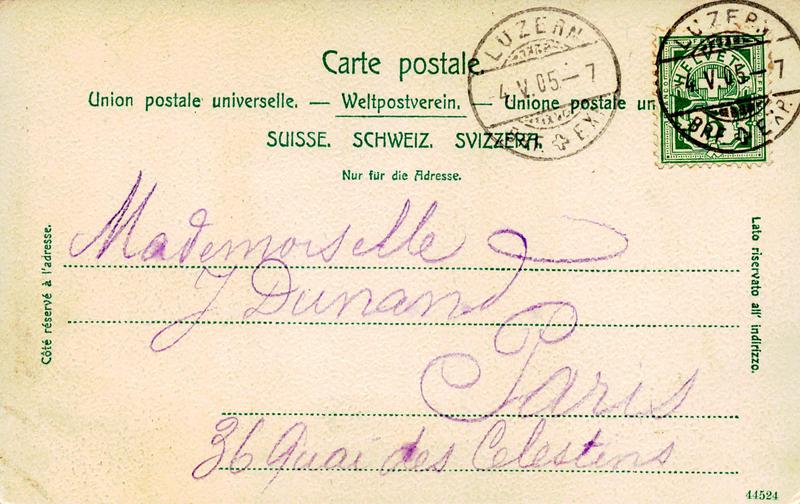 Carte postale.
Union postale universelle. — Weltpostverein. — Unione postale un
SUISSE. SCHWEIZ. SVIZZERA.
Nur für die Adresse.
LUZERN
4.V.05—7
BRF. EXP.
HELVETIA
LUZERN
4.V.05—7
BRF. EXP.
Côté réservé à l'adresse.
Mademoiselle
J Dunand
Paris
36 Quai des Celestins
Lato riservato all' indirizzo.
44524